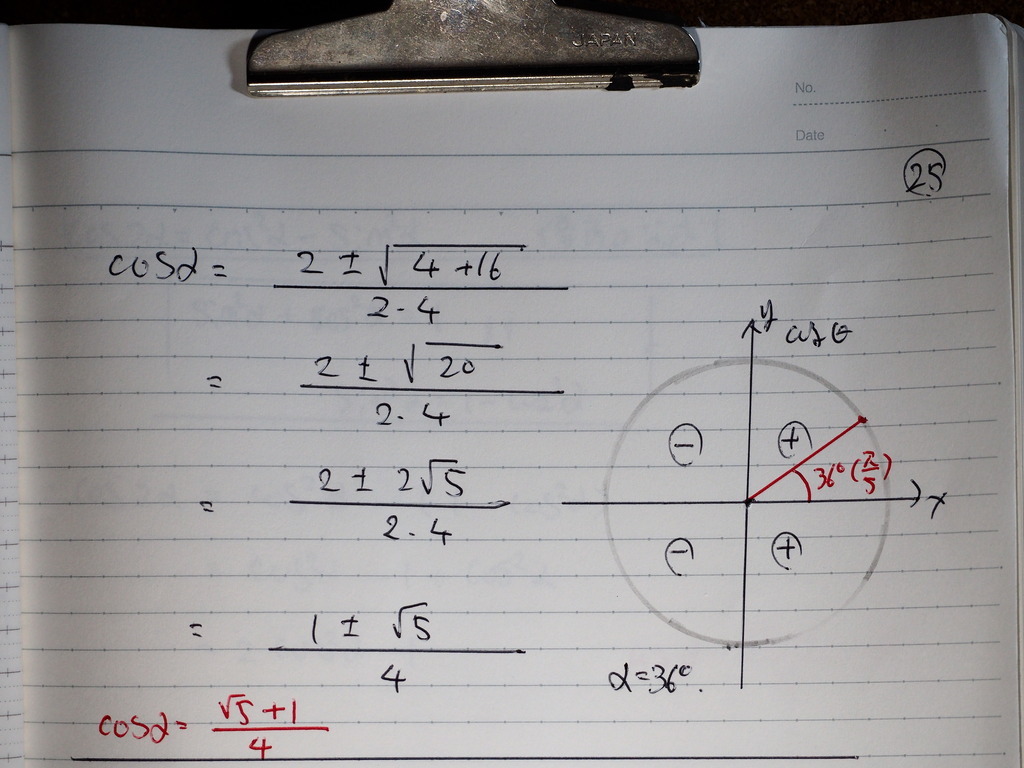 JAPAN
No.
Date
25
cosα = (2 ± √(4 + 16)) / (2 · 4)
= (2 ± √20) / (2 · 4)
= (2 ± 2√5) / (2 · 4)
= (1 ± √5) / 4
cosα = (√5 + 1) / 4
y
cos θ
⊖ ⊕
36° (π/5)
x
⊖ ⊕
α = 36°.